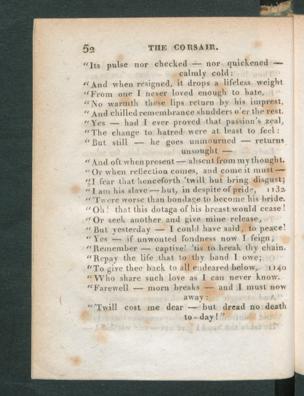 52 THE CORSAIR.
"Its pulse nor checked — nor quickened —
calmly cold:
"And when resigned, it drops a lifeless weight
"From one I never loved enough to hate.
"No warmth these lips return by his imprest,
"And chilled remembrance shudders o'er the rest.
"Yes — had I ever proved that passion's zeal,
"The change to hatred were at least to feel:
"But still — he goes unmourned — returns
unsought —
"And oft when present — absent from my thought.
"Or when reflection comes, and come it must —
"I fear that henceforth 'twill but bring disgust;
"I am his slave — but, in despite of pride, 1132
"'Twere worse than bondage to become his bride.
"Oh! that this dotage of his breast would cease!
"Or seek another and give mine release,
"But yesterday — I could have said, to peace!
"Yes — if unwonted fondness now I feign,
"Remember — captive! 'tis to break thy chain.
"Repay the life that to thy hand I owe;
"To give thee back to all endeared below, 1140
"Who share such love as I can never know.
"Farewell — morn breaks — and I must now
away:
"'Twill cost me dear — but dread no death
to-day!"